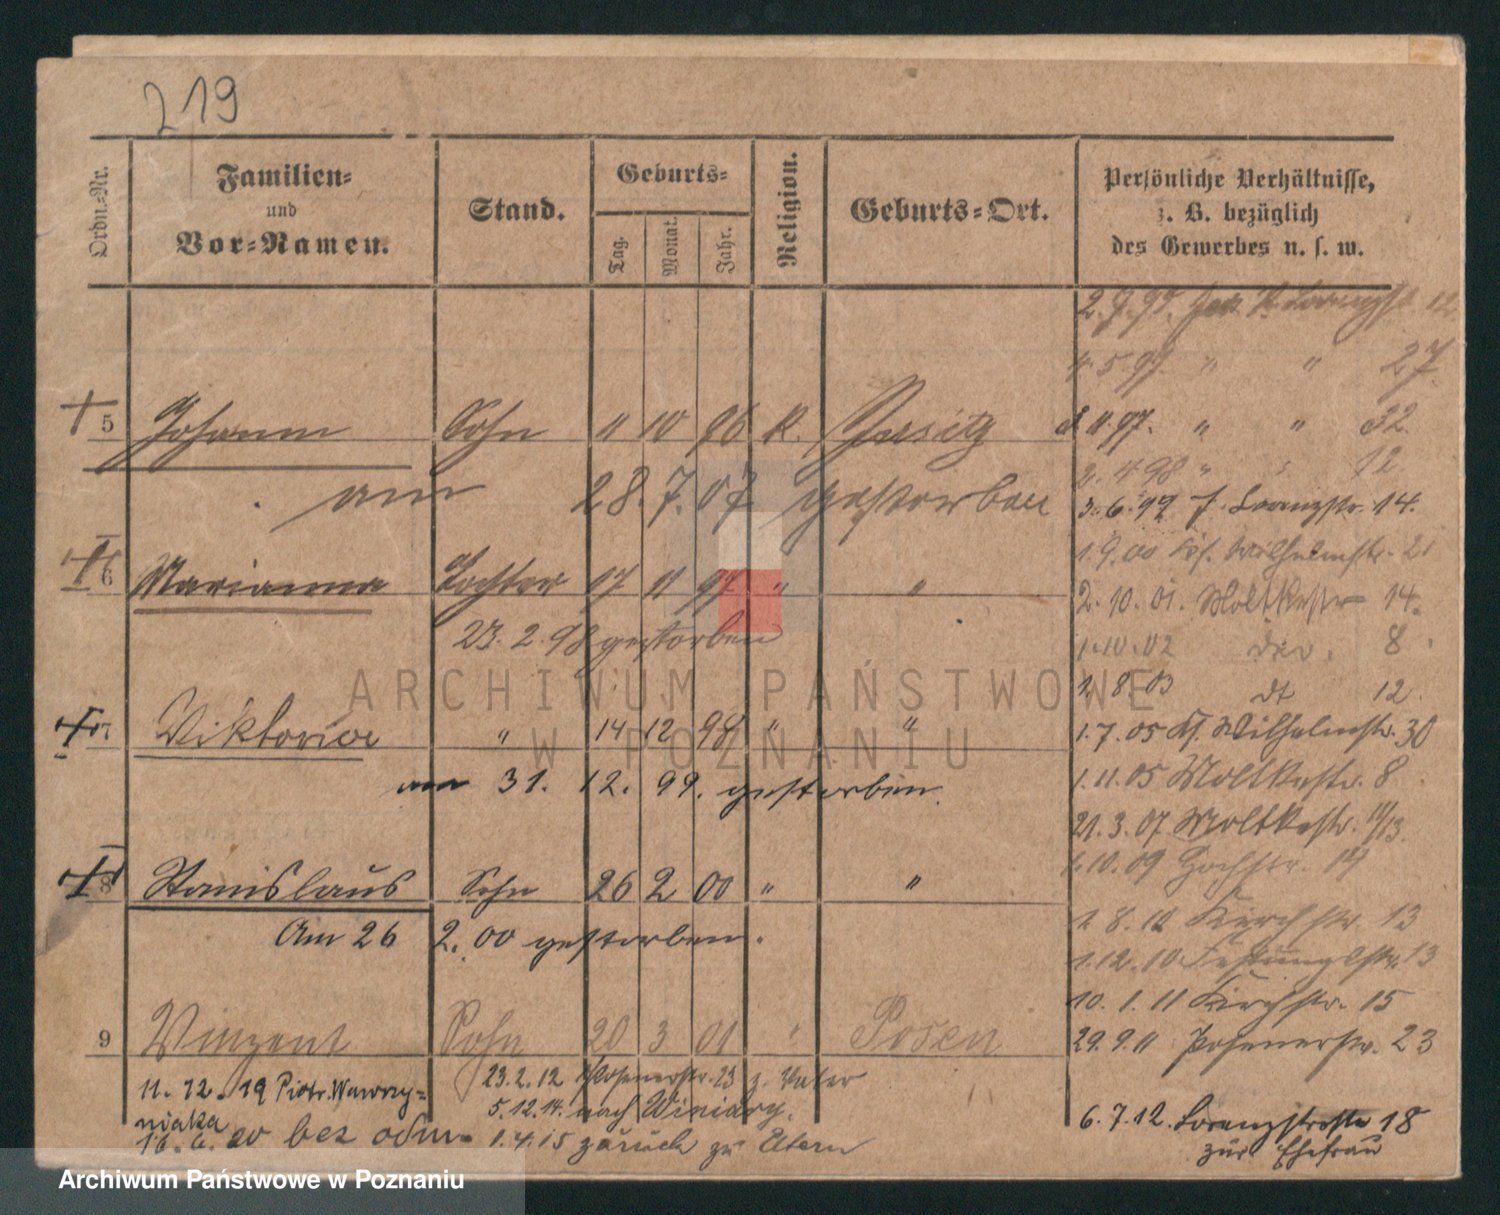 219
Ordn.-Nr.
Familien-
und
Vor-Namen.
Stand.
Geburts-
Tag.
Monat.
Jahr.
Religion.
Geburts-Ort.
Persönliche Verhältnisse,
z. B. bezüglich
des Gewerbes u. s. w.
5 Johann Sohn 11 10 96 K. Jersitz
am 28. 7. 07 gestorben
6 Marianna Tochter 17 11 97 " "
23. 2. 98 gestorben
7 Viktoria " 14 12 98 " "
am 31. 12. 99. gestorben.
8 Stanislaus Sohn 26 2 00 " "
Am 26 2. 00 gestorben.
9 Vinzent Sohn 20 3 01 " Posen
23. 2. 12 Posenerstr. 23 z. Vater
5. 12. 14. nach Winiary.
1. 4. 15 zurück zu Eltern
11. 12. 19 Piotr. Wawrzy=
niaka
16. 6. 20 bez odm.
4. 5. 97. " " 27
11. 97. " " 32.
2. 4 98 " " 12
3. 6. 99 Lorenzstr. 14.
1. 9. 00 Wilhelmstr. 21
2. 10. 01. Moltkestr 14.
1. 10. 02 8
1. 8. 03 dt 12
1. 7. 05 Kl. Wilhelmstr. 30
1. 11. 05 Moltkestr. 8
21. 3. 07 Moltkestr. 11/13.
1. 10. 09 Hochstr. 17
1. 8. 10 Kirchstr. 13
1. 12. 10 Festungsstr. 13
10. 1. 11 Kirchstr. 15
29. 9. 11 Posenerstr. 23
6. 7. 12. Lorenzstraße 18
zur Ehefrau
ARCHIWUM PAŃSTWOWE
W POZNANIU
Archiwum Państwowe w Poznaniu